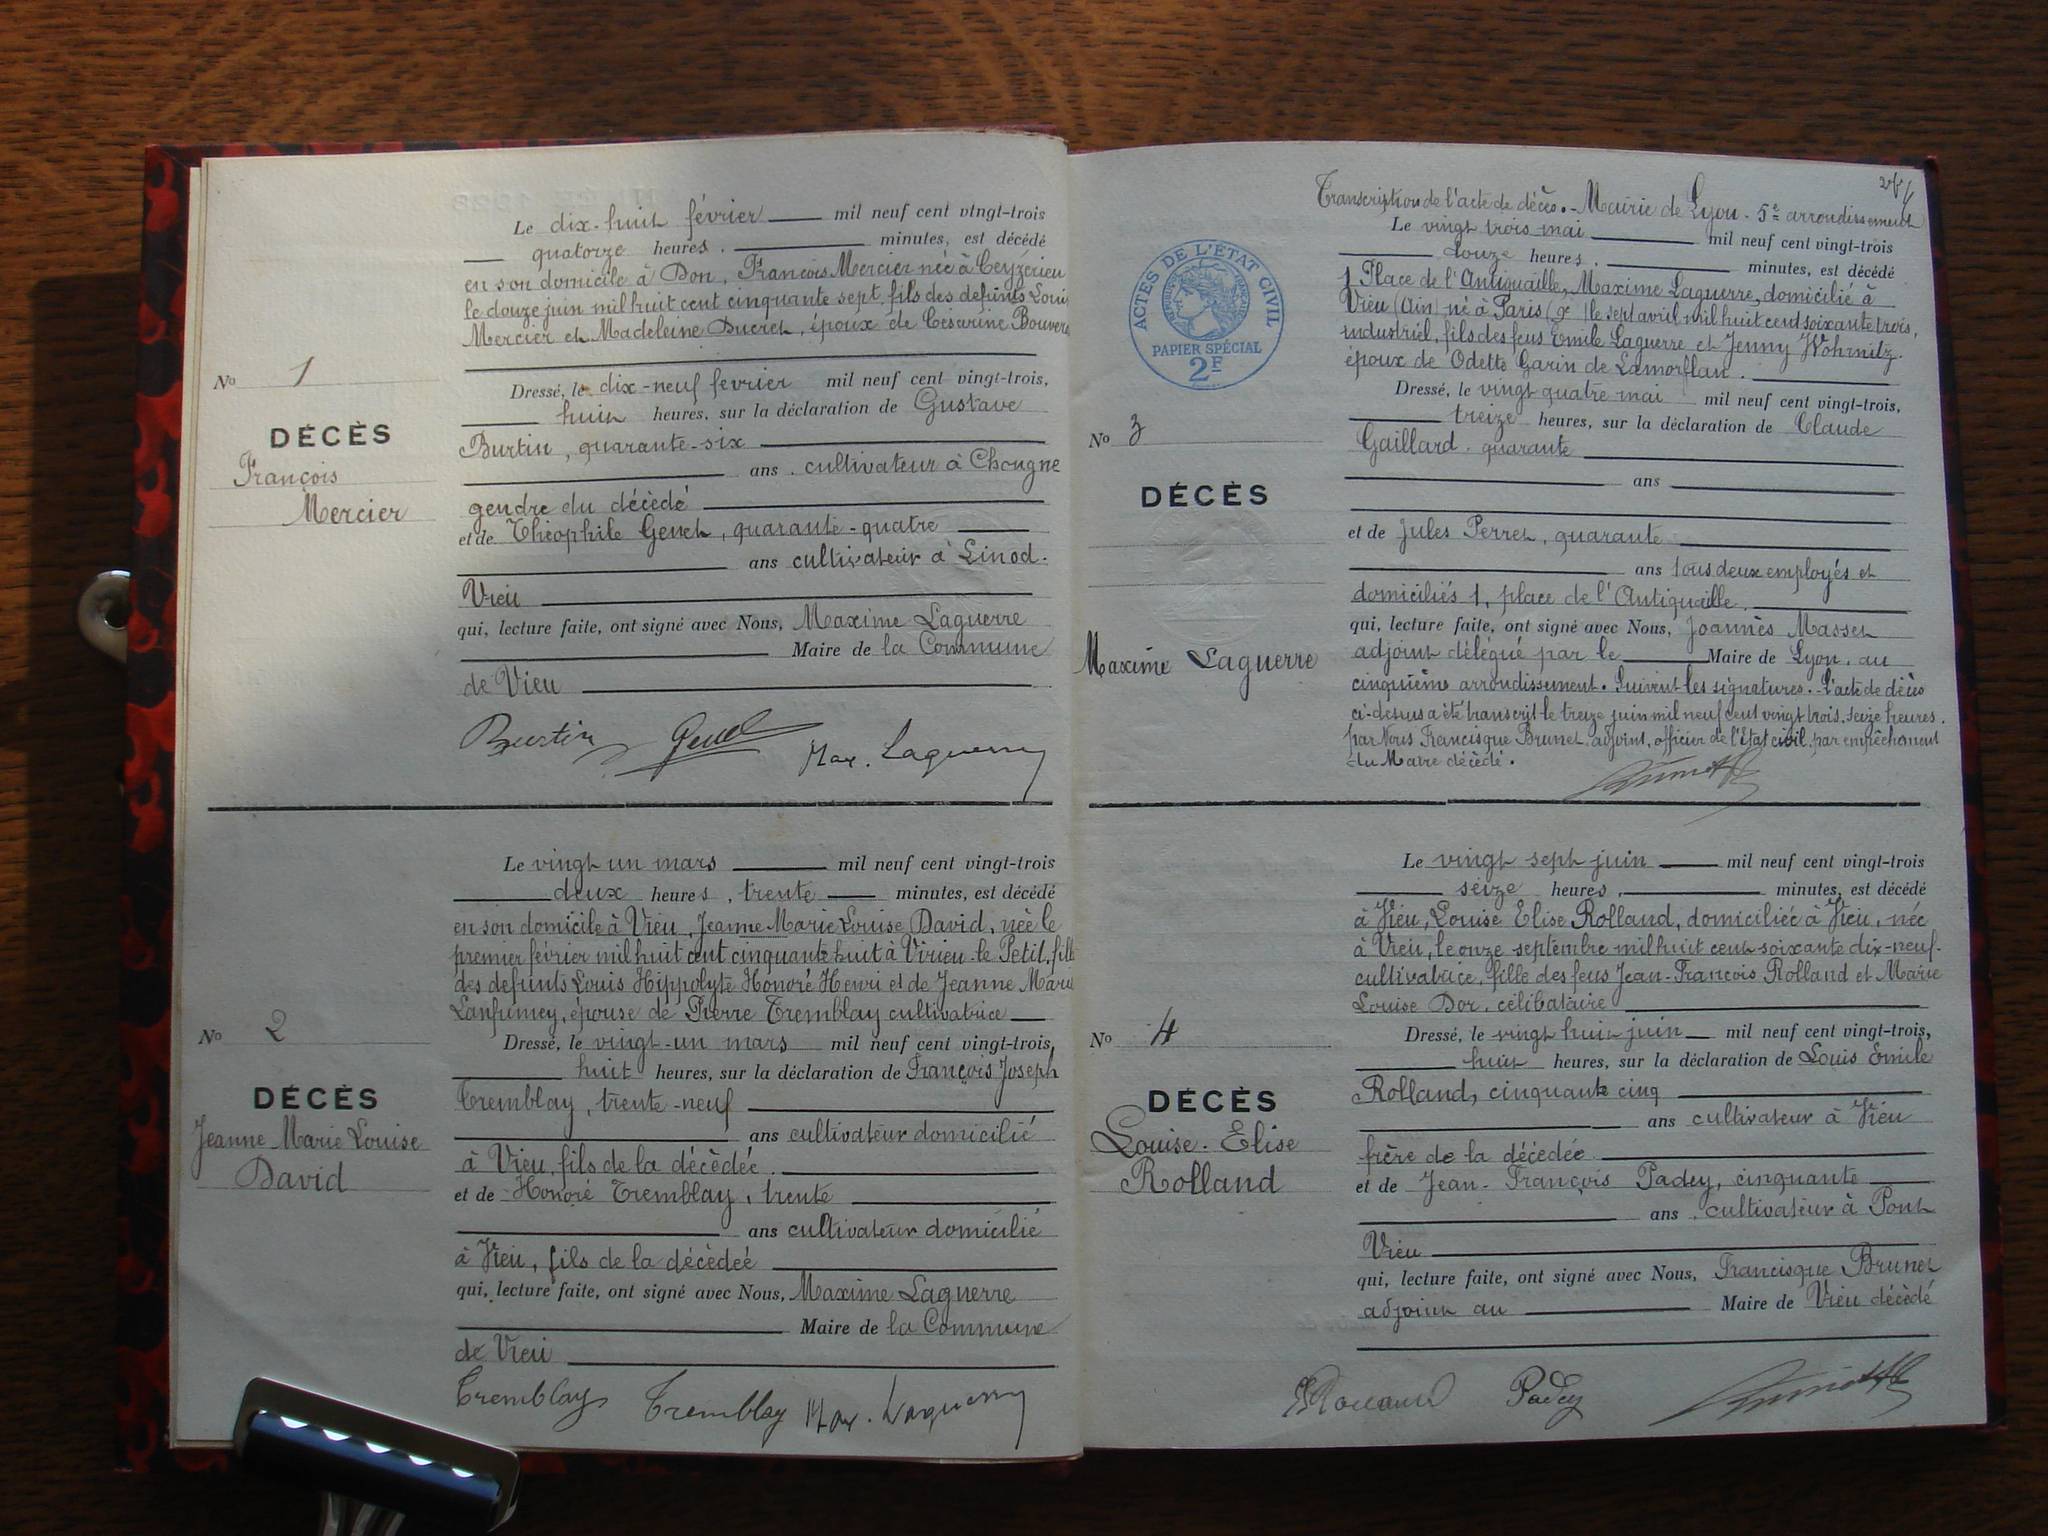 Le dix-huit février mil neuf cent vingt-trois
quatorze heures. minutes, est décédé
en son domicile à Don, François Mercier né à Ceyzérieu
le douze juin mil huit cent cinquante sept, fils des defunts Loui
Mercier et Madeleine Ducret, époux de Césarine Bouver
No 1
DÉCÈS
François
Mercier
Dressé, le dix-neuf fevrier mil neuf cent vingt-trois,
huit heures, sur la déclaration de Gustave
Burtin, quarante-six
ans. cultivateur à Chongne
gendre du décédé
et de Théophile Genet, quarante-quatre
ans cultivateur à Linod.
Vieu
qui, lecture faite, ont signé avec Nous, Maxime Laguerre
Maire de la Commune
de Vieu
Burtin Genet Max. Laguerre
Le vingt un mars mil neuf cent vingt-trois
deux heures, trente minutes, est décédé
en son domicile à Vieu, Jeanne Marie Louise David, née le
premier février mil huit cent cinquante huit à Virieu-le Petit, fille
des defunts Louis Hippolyte Honoré Henri et de Jeanne Marie
Lanfumey, épouse de Pierre Tremblay cultivatrice
No 2
DÉCÈS
Jeanne Marie Louise
David
Dressé, le vingt-un mars mil neuf cent vingt-trois,
huit heures, sur la déclaration de François Joseph
Tremblay, trente-neuf
ans cultivateur domicilié
à Vieu, fils de la décèdée
et de Honoré Tremblay, trente
ans cultivateur domicilié
à Vieu, fils de la décèdeé
qui, lecture faite, ont signé avec Nous, Maxime Laguerre
Maire de la Commune
de Vieu
Tremblay Tremblay Max. Laguerre
Transcription de l'acte de décès. - Mairie de Lyon - 5e arrondissement
Le vingt trois mai mil neuf cent vingt-trois
douze heures. minutes, est décédé
1 Place de l'Antiquaille, Maxime Laguerre, domicilié à
Vieu (Ain) né à Paris le sept avril mil huit cent soixante trois,
industriel, fils des feus Emile Laguerre et Jenny Wohrnitz.
époux de Odette Garin de Lamorflan.
ACTES DE L'ÉTAT CIVIL
RÉPUBLIQUE FRANÇAISE
PAPIER SPÉCIAL
2F
No 3
DÉCÈS
Maxime Laguerre
Dressé, le vingt quatre mai mil neuf cent vingt-trois,
treize heures, sur la déclaration de Claude
Gaillard. quarante
ans
et de Jules Perret, quarante
ans tous deux employés et
domiciliés 1, place de l'Antiquaille.
qui, lecture faite, ont signé avec Nous, Joannès Masset
adjoint délégué par le Maire de Lyon, au
cinquième arrondissement. Suivent les signatures. - L'acte de décès
ci-dessus a été transcrit le treize juin mil neuf cent vingt trois. seize heures.
par Nous Francisque Brunet adjoint, officier de l'Etat civil, par empêchement
du Maire décédé.
Le vingt sept juin mil neuf cent vingt-trois
seize heures, minutes, est décédé
à Vieu, Louise Elise Rolland, domiciliée à Vieu, née
à Vieu, le onze septembre mil huit cent soixante dix-neuf.
cultivatrice, fille des feus Jean-François Rolland et Marie
Louise Dor. célibataire
No 4
DÉCÈS
Louise. Elise
Rolland
Dressé, le vingt huit juin mil neuf cent vingt-trois,
huit heures, sur la déclaration de Louis Emile
Rolland, cinquante cinq
ans cultivateur à Vieu
frère de la décédée
et de Jean-François Padey, cinquante
ans. cultivateur à Pont
Vieu
qui, lecture faite, ont signé avec Nous, Francisque Brunet
adjoint au Maire de Vieu décédé
Padey